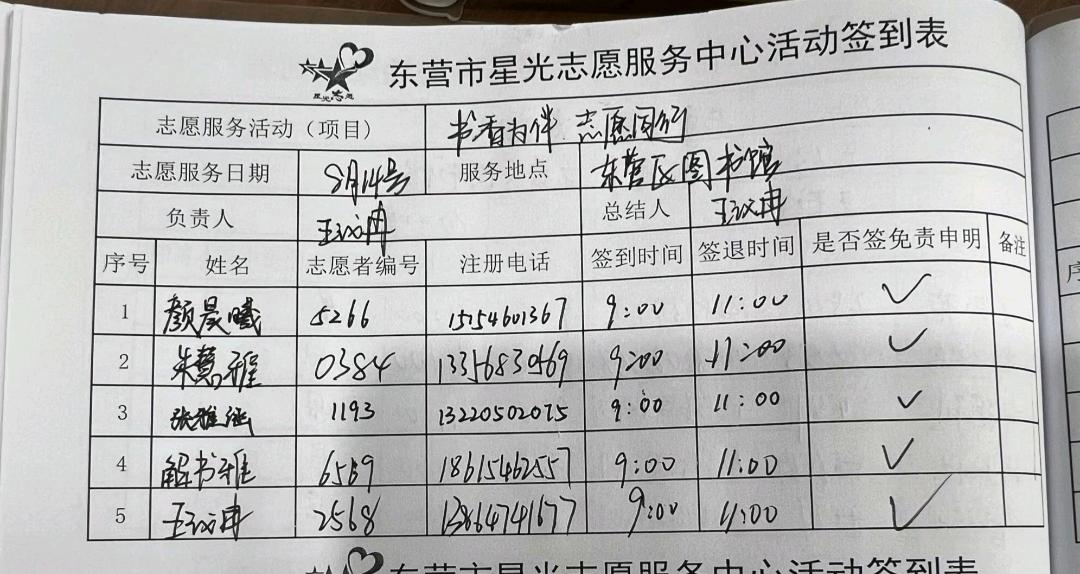 星光志愿
东营市星光志愿服务中心活动签到表
志愿服务活动（项目） 书香为伴 志愿同行
志愿服务日期 8月14号 服务地点 东营区图书馆
负责人 王冉 总结人 王冉
序号 姓名 志愿者编号 注册电话 签到时间 签退时间 是否签免责申明 备注
1 颜晨曦 5266 15154601367 9:00 11:00 ✓
2 朱慧雅 0384 13356830569 9:00 11:00 ✓
3 张雅涵 1193 13220502075 9:00 11:00 ✓
4 解书雅 6589 18615462557 9:00 11:00 ✓
5 王冉 2568 13864741677 9:00 11:00 ✓
东营市星光志愿服务中心活动签到表